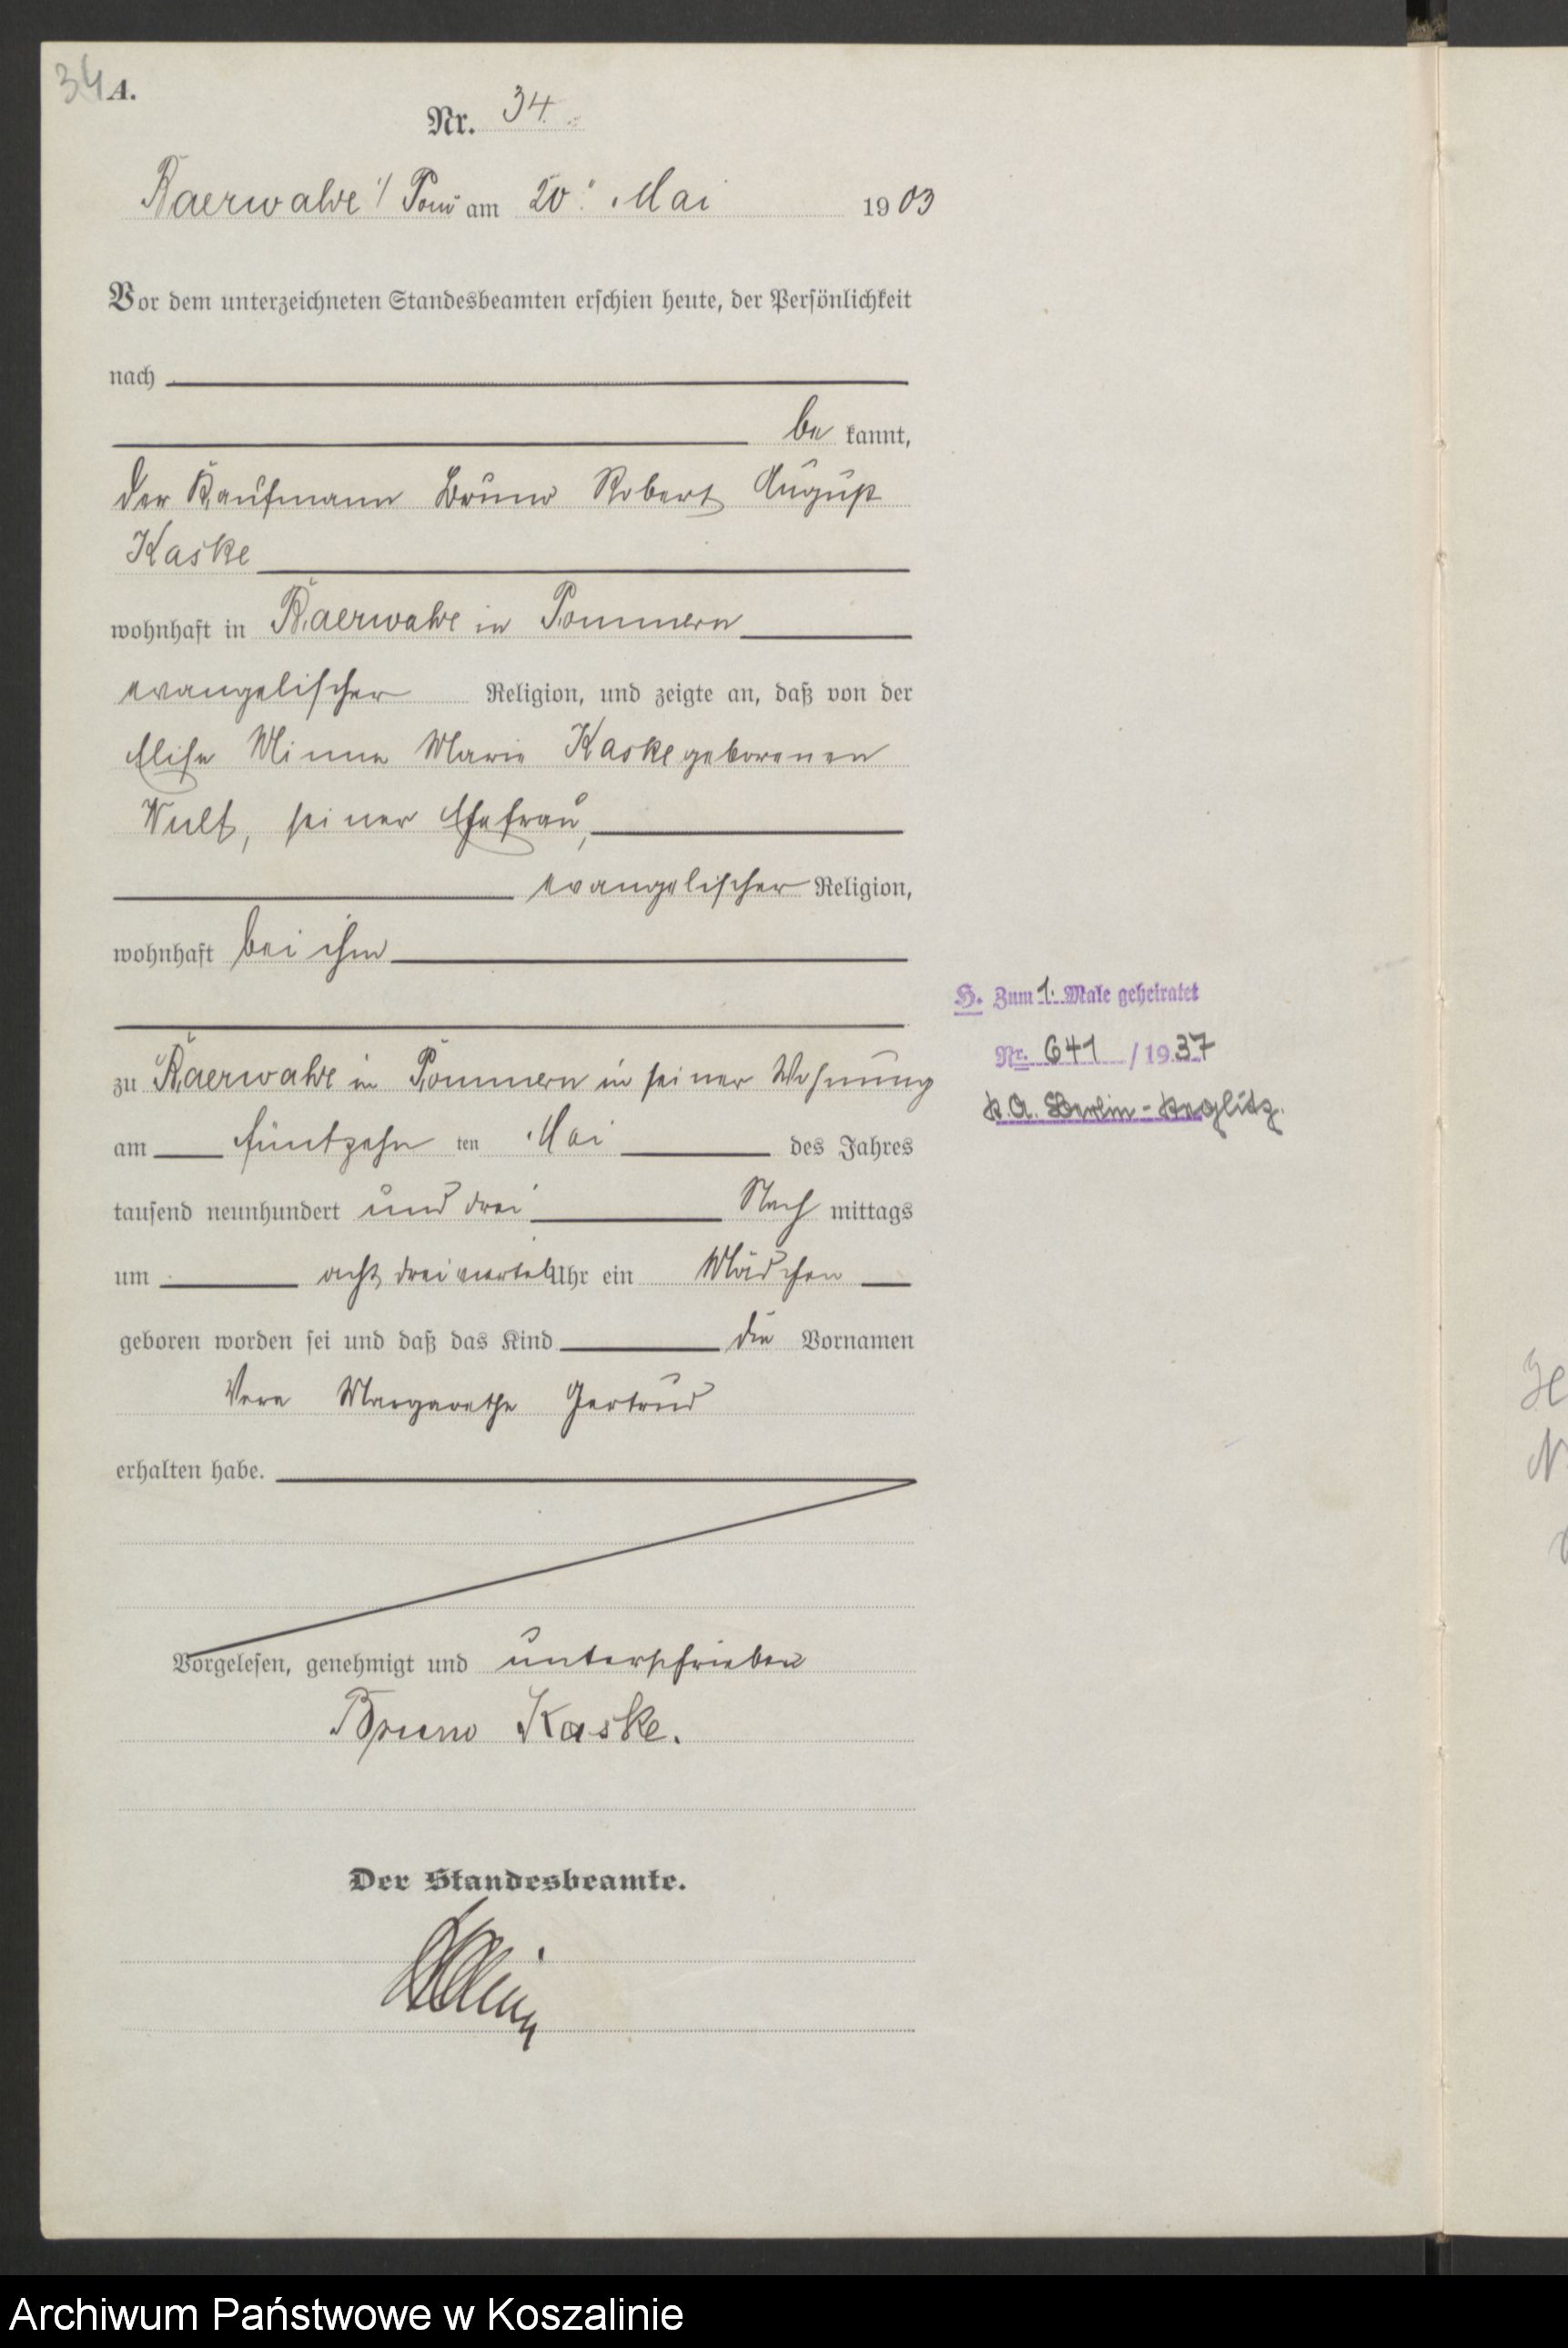 34
A.
Nr. 34.
Baerwalde i/ Pom am 20. Mai 1903
Vor dem unterzeichneten Standesbeamten erschien heute, der Persönlichkeit
nach
be kannt,
der Kaufmann Bruno Robert August
Kaske
wohnhaft in Baerwalde in Pommern
evangelischer Religion, und zeigte an, daß von der
Elise Minna Marie Kaske geborenen
Wult, seiner Ehefrau,
evangelischer Religion,
wohnhaft bei ihm
zu Baerwalde in Pommern in seiner Wohnung
am fünfzehn ten Mai des Jahres
tausend neunhundert und drei Nach mittags
um acht dreiviertel Uhr ein Mädchen
geboren worden sei und daß das Kind die Vornamen
Vera Margarethe Gertrud
erhalten habe.
Vorgelesen, genehmigt und unterschrieben
Bruno Kaske.
Der Standesbeamte.
H. Zum 1. Male geheiratet
Nr. 641 / 1937
St.A. Berlin-Steglitz.
Archiwum Państwowe w Koszalinie